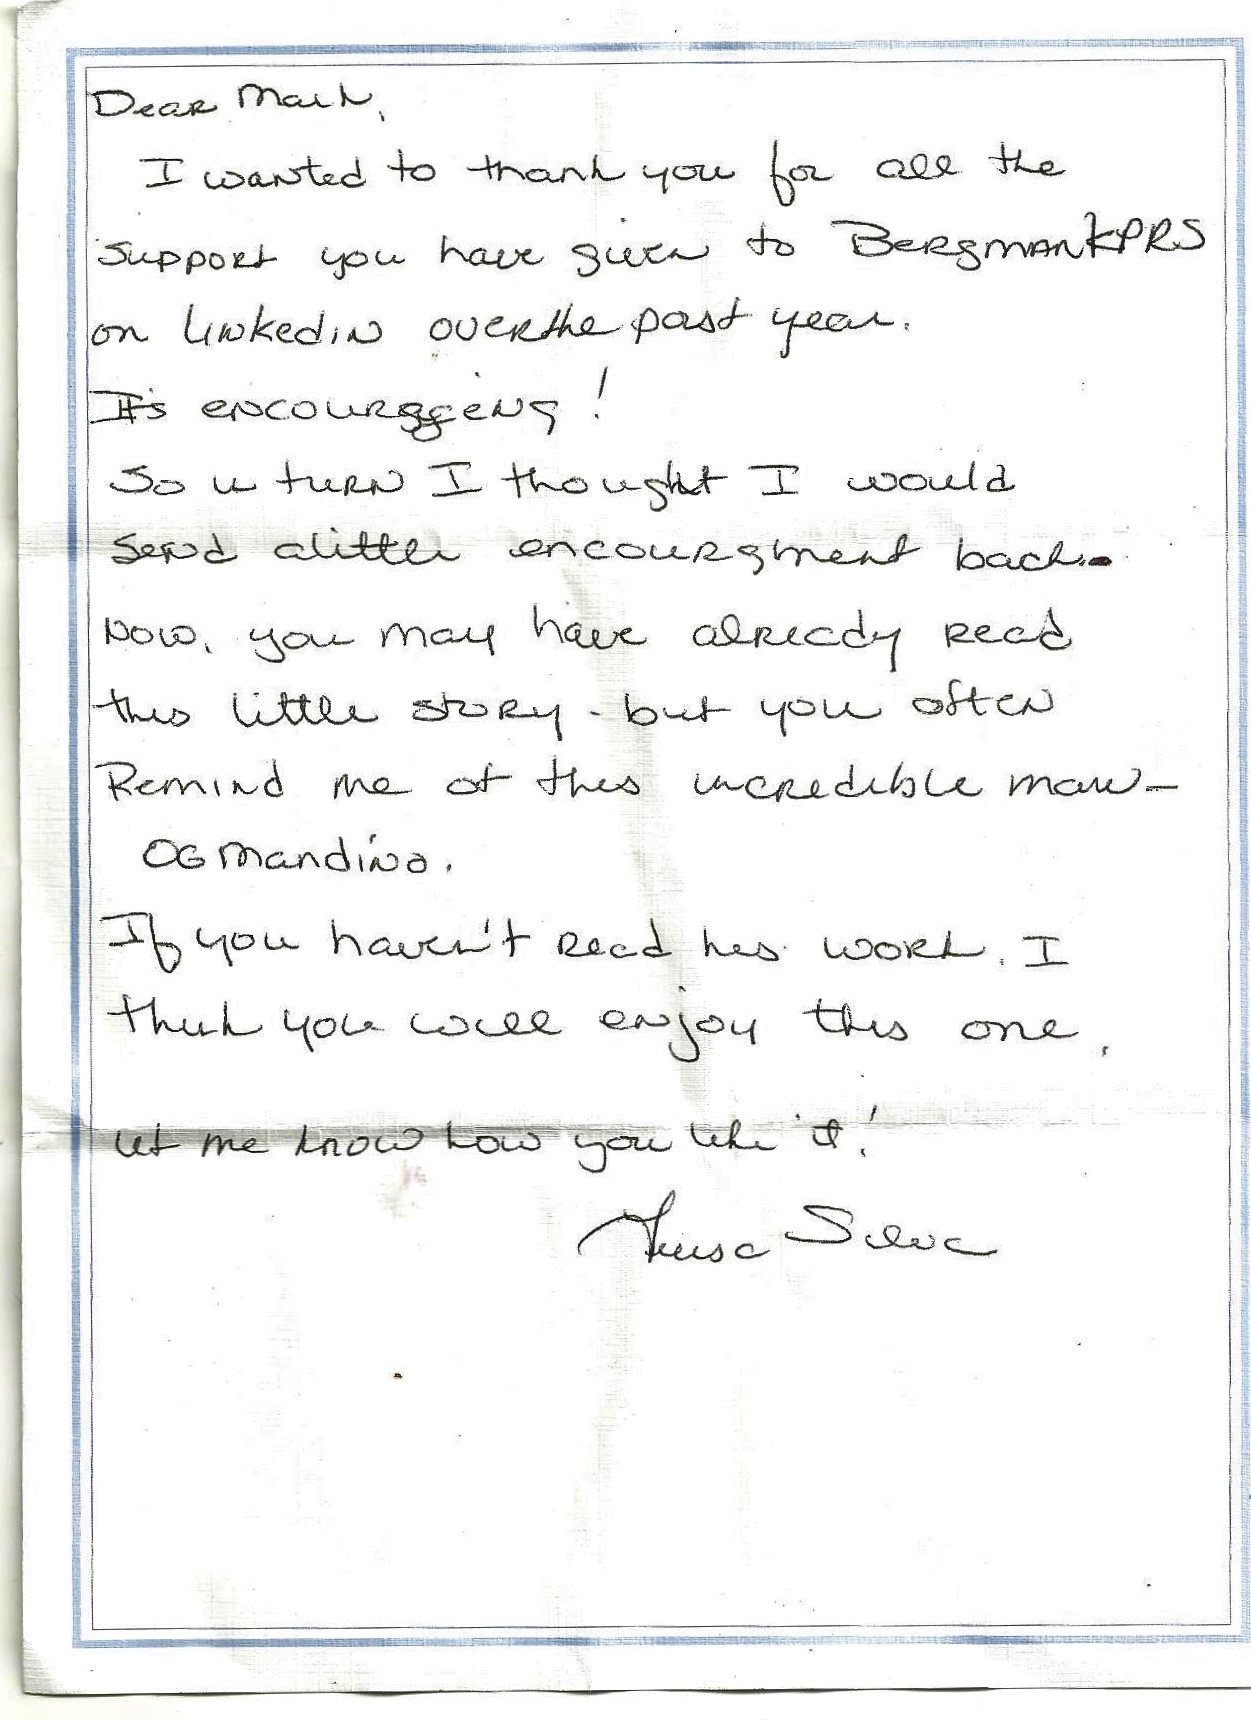 Dear Mark,
I wanted to thank you for all the
support you have given to BergmanKPRS
on linkedin over the past year.
It's encouraging!
So in turn I thought I would
send a little encourgment back.
Now, you may have already read
this little story - but you often
Remind me of this incredible man -
OG Mandino.
If you haven't read his work, I
think you will enjoy this one.
let me know how you like it!
Silva